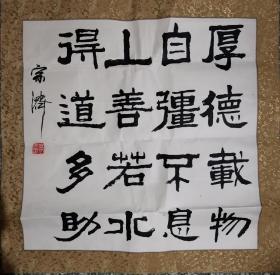 厚德載物
自彊不息
上善若水
得道多助
宗濟